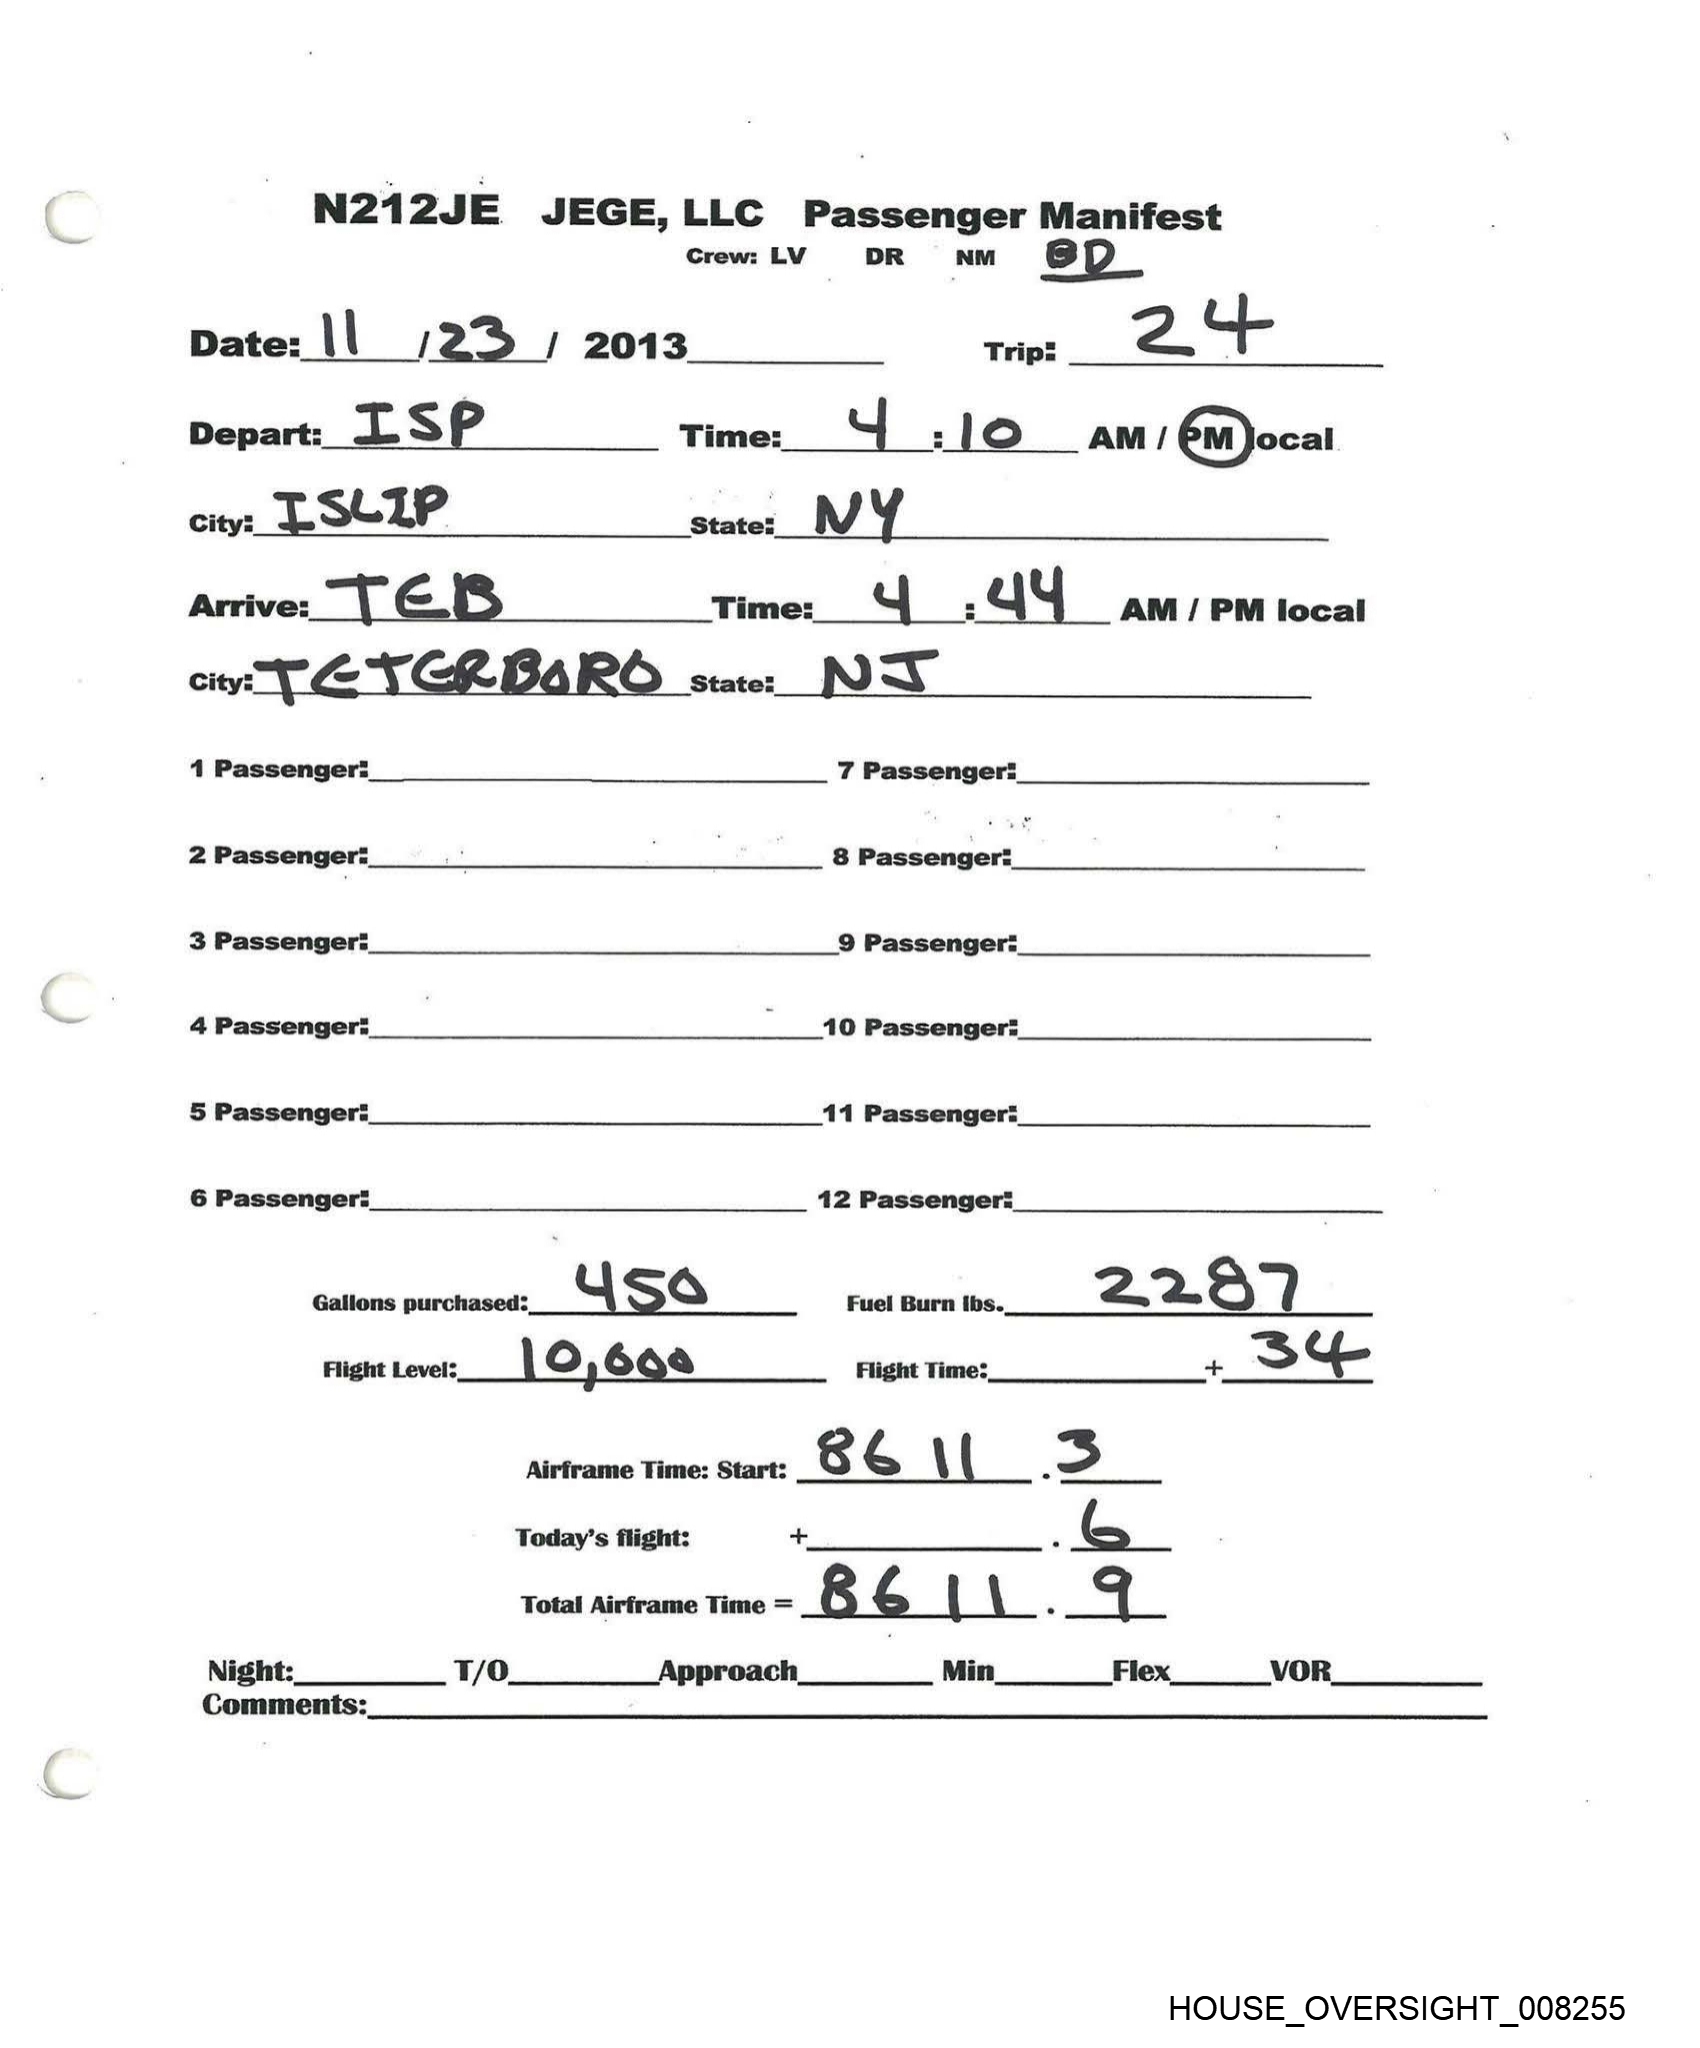 N212JE JEGE, LLC Passenger Manifest
Crew: LV DR NM BD
Date: 11 / 23 / 2013 Trip: 24
Depart: ISP Time: 4 : 10 AM / PM local
City: ISLIP State: NY
Arrive: TEB Time: 4 : 44 AM / PM local
City: TETERBORO State: NJ
1 Passenger: 7 Passenger:
2 Passenger: 8 Passenger:
3 Passenger: 9 Passenger:
4 Passenger: 10 Passenger:
5 Passenger: 11 Passenger:
6 Passenger: 12 Passenger:
Gallons purchased: 450 Fuel Burn lbs. 2287
Flight Level: 10,000 Flight Time: + 34
Airframe Time: Start: 8611 . 3
Today's flight: + . 6
Total Airframe Time = 8611 . 9
Night: T/O Approach Min Flex VOR
Comments:
HOUSE_OVERSIGHT_008255